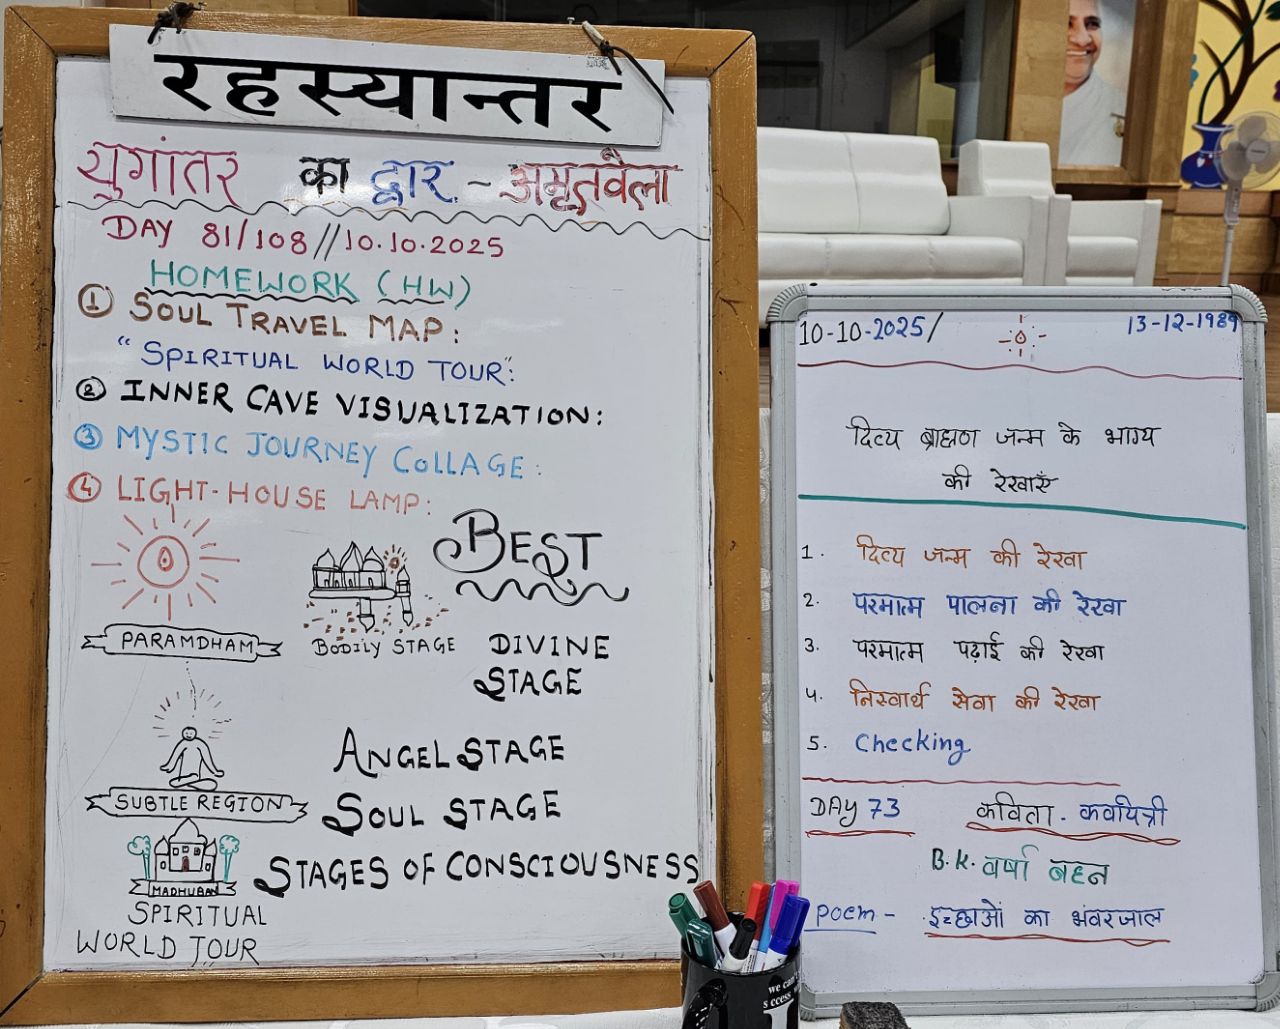 रहस्यान्तर
युगांतर का द्वार - अमृतवेला
DAY 81/108//10.10.2025
HOMEWORK (HW)
① SOUL TRAVEL MAP:
“SPIRITUAL WORLD TOUR”:
② INNER CAVE VISUALIZATION:
③ MYSTIC JOURNEY COLLAGE:
④ LIGHT-HOUSE LAMP:
BEST
PARAMDHAM
BODILY STAGE
DIVINE
STAGE
ANGEL STAGE
SUBTLE REGION
SOUL STAGE
STAGES OF CONSCIOUSNESS
MADHUBAN
SPIRITUAL
WORLD TOUR
10-10-2025/ 13-12-1989
दिव्य ब्राह्मण जन्म के भाग्य
की रेखाएँ
1. दिव्य जन्म की रेखा
2. परमात्म पालना की रेखा
3. परमात्म पढ़ाई की रेखा
4. निस्वार्थ सेवा की रेखा
5. Checking
DAY 73 कविता - कवयित्री
B.K. वर्षा बहन
poem - इच्छाओं का भंवरजाल
we can